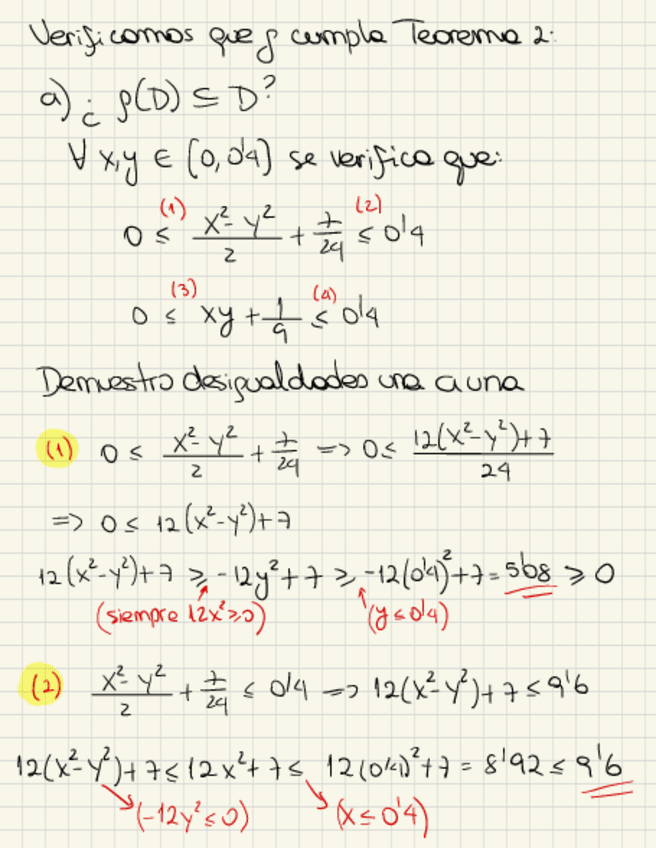 Verificamos que ρ cumpla Teorema 2:
a) ¿ ρ(D) ⊆ D?
∀ x,y ∈ [0,0'4) se verifica que:
(1) (2)
0 ≤ (x²-y²)/2 + 7/24 ≤ 0'4
(3) (4)
0 ≤ xy + 1/9 ≤ 0'4
Demuestro desigualdades una a una
(1) 0 ≤ (x²-y²)/2 + 7/24 => 0 ≤ (12(x²-y²)+7)/24
=> 0 ≤ 12(x²-y²)+7
12(x²-y²)+7 ≥ -12y²+7 ≥ -12(0'4)²+7 = 5'08 ≥ 0
(siempre 12x²≥0) (y≤0'4)
(2) (x²-y²)/2 + 7/24 ≤ 0'4 => 12(x²-y²)+7 ≤ 9'6
12(x²-y²)+7 ≤ 12x²+7 ≤ 12(0'4)²+7 = 8'92 ≤ 9'6
(-12y²≤0) (x≤0'4)